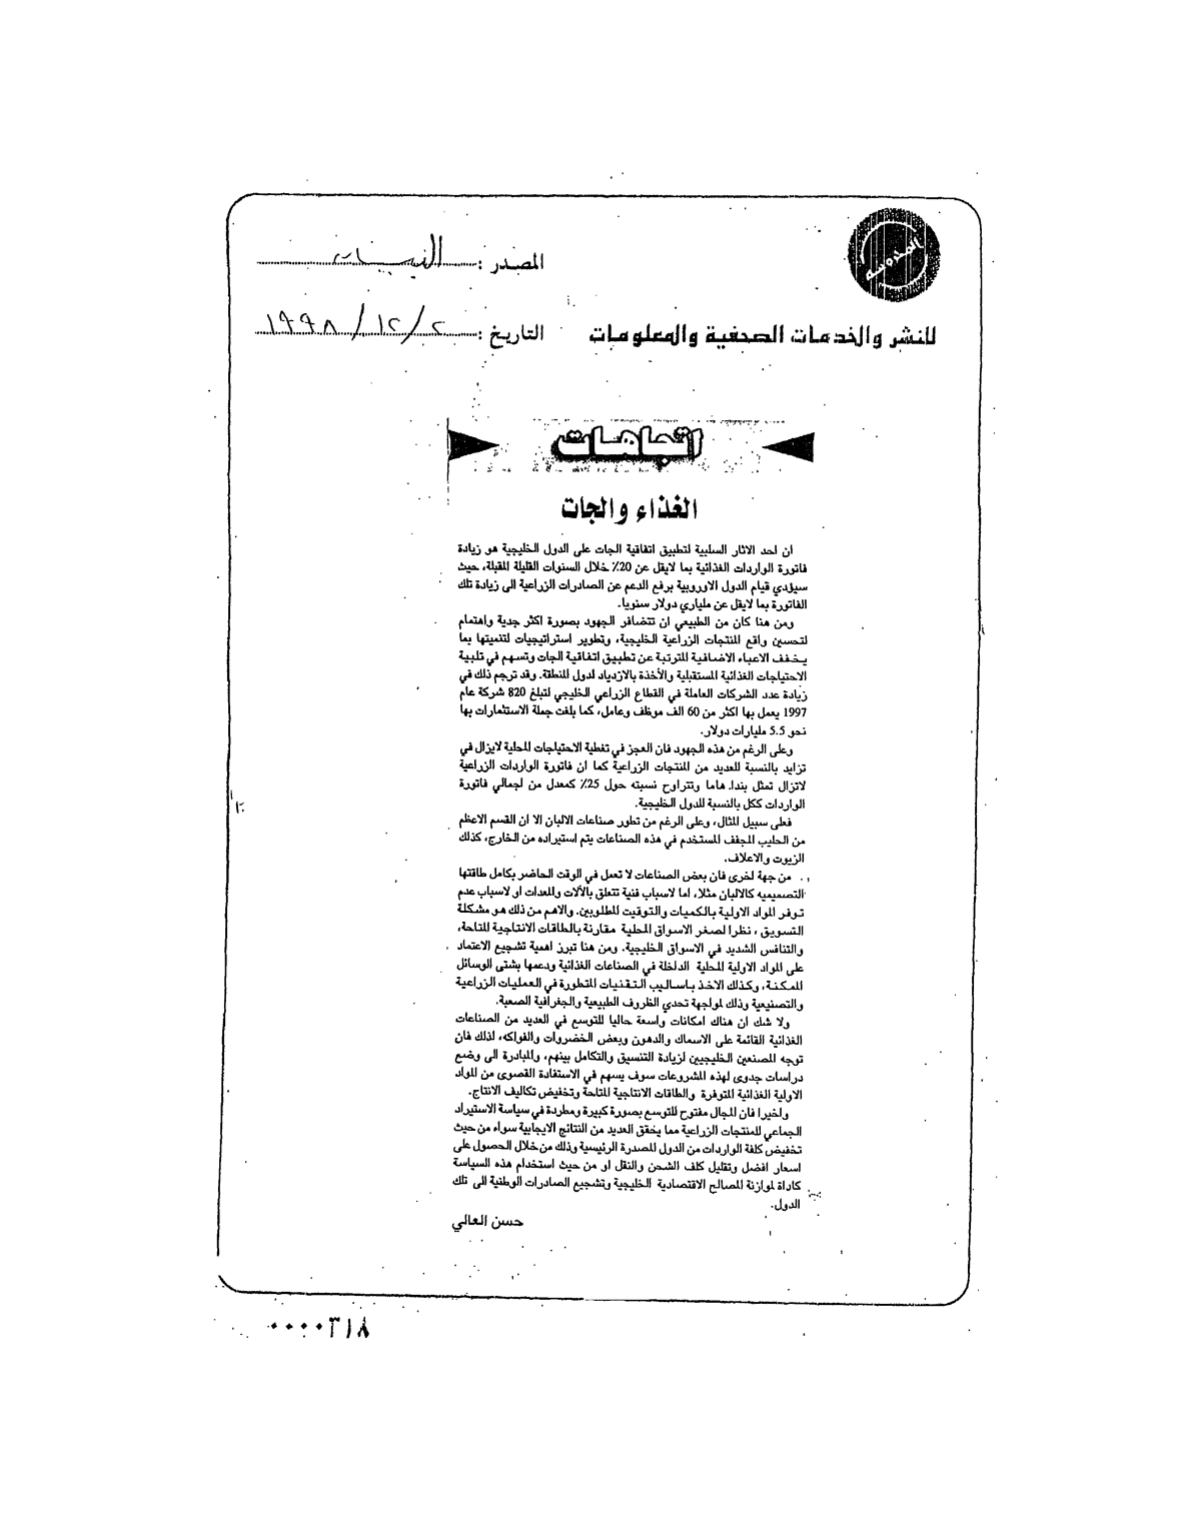 المدروسة
المصدر : البيان
للنشر والخدمات الصحفية والمعلومات
التاريخ : ٢/١٢/١٩٩٨
اتجاهات
الغذاء والجات
ان احد الاثار السلبية لتطبيق اتفاقية الجات على الدول الخليجية هو زيادة
فاتورة الواردات الغذائية بما لايقل عن 20٪ خلال السنوات القليلة المقبلة، حيث
سيؤدي قيام الدول الاوروبية برفع الدعم عن الصادرات الزراعية الى زيادة تلك
الفاتورة بما لايقل عن ملياري دولار سنويا.
ومن هنا كان من الطبيعي ان تتضافر الجهود بصورة اكثر جدية واهتمام
لتحسين واقع المنتجات الزراعية الخليجية، وتطوير استراتيجيات لتنميتها بما
يخفف الاعباء الاضافية المترتبة عن تطبيق اتفاقية الجات وتسهم في تلبية
الاحتياجات الغذائية المستقبلية والأخذة بالازدياد لدول المنطقة. وقد ترجم ذلك في
زيادة عدد الشركات العاملة في القطاع الزراعي الخليجي لتبلغ 820 شركة عام
1997 يعمل بها اكثر من 60 الف موظف وعامل، كما بلغت جملة الاستثمارات بها
نحو 5.5 مليارات دولار.
وعلى الرغم من هذه الجهود فان العجز في تغطية الاحتياجات المحلية لايزال في
تزايد بالنسبة للعديد من المنتجات الزراعية كما ان فاتورة الواردات الزراعية
لاتزال تمثل بندا هاما وتتراوح نسبته حول 25٪ كمعدل من اجمالي فاتورة
الواردات ككل بالنسبة للدول الخليجية.
فعلى سبيل المثال، وعلى الرغم من تطور صناعات الالبان الا ان القسم الاعظم
من الحليب المجفف المستخدم في هذه الصناعات يتم استيراده من الخارج، كذلك
الزيوت والاعلاف.
من جهة اخرى فان بعض الصناعات لا تعمل في الوقت الحاضر بكامل طاقتها
التصميميه كالالبان مثلا، اما لاسباب فنية تتعلق بالآلات والمعدات او لاسباب عدم
توفر المواد الاولية بالكميات والتوقيت المطلوبين. والاهم من ذلك هو مشكلة
التسويق، نظرا لصغر الاسواق المحلية مقارنة بالطاقات الانتاجية المتاحة،
والتنافس الشديد في الاسواق الخليجية. ومن هنا تبرز اهمية تشجيع الاعتماد
على المواد الاولية المحلية الداخلة في الصناعات الغذائية ودعمها بشتى الوسائل
الممكنة، وكذلك الاخذ باساليب التقنيات المتطورة في العمليات الزراعية
والتصنيعية وذلك لمواجهة تحدي الظروف الطبيعية والجغرافية الصعبة.
ولا شك ان هناك امكانات واسعة حاليا للتوسع في العديد من الصناعات
الغذائية القائمة على الاسماك والدهون وبعض الخضروات والفواكه، لذلك فان
توجه المصنعين الخليجيين لزيادة التنسيق والتكامل بينهم، والمبادرة الى وضع
دراسات جدوى لهذه المشروعات سوف يسهم في الاستفادة القصوى من المواد
الاولية الغذائية المتوفرة والطاقات الانتاجية المتاحة وتخفيض تكاليف الانتاج.
واخيرا فان المجال مفتوح للتوسع بصورة كبيرة ومطردة في سياسة الاستيراد
الجماعي للمنتجات الزراعية مما يحقق العديد من النتائج الايجابية سواء من حيث
تخفيض كلفة الواردات من الدول المصدرة الرئيسية وذلك من خلال الحصول على
اسعار افضل وتقليل كلف الشحن والنقل او من حيث استخدام هذه السياسة
كاداة لموازنة المصالح الاقتصادية الخليجية وتشجيع الصادرات الوطنية الى تلك
الدول.
حسن العالي
٠٠٠٠٣١٨